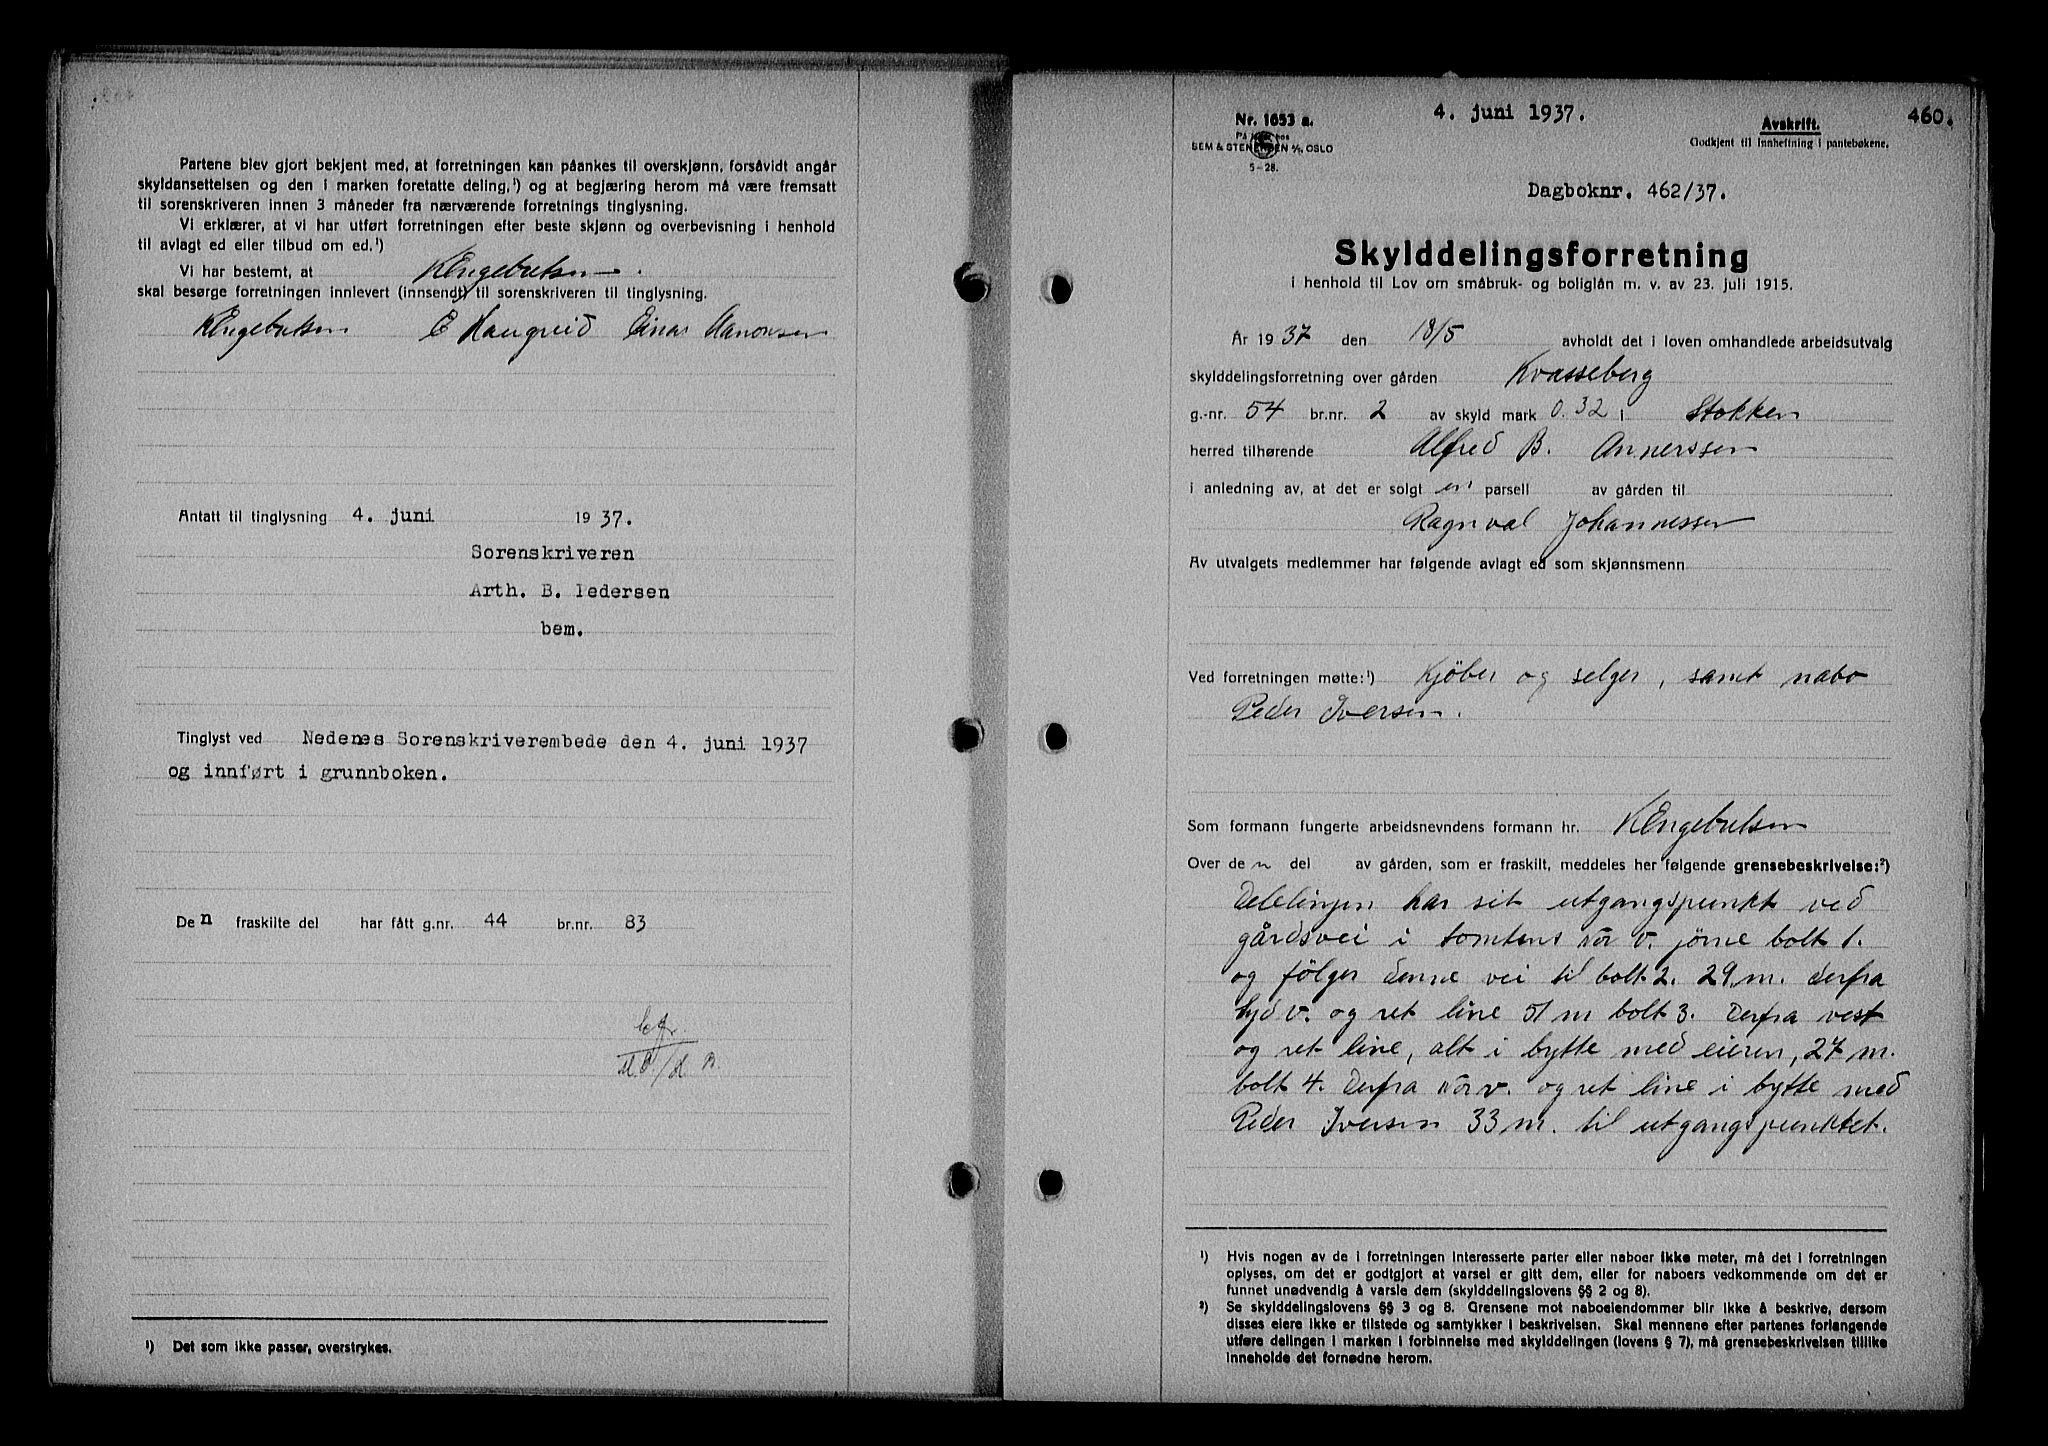 Partene blev gjort bekjent med, at forretningen kan påankes til overskjønn, forsåvidt angår
skyldansettelsen og den i marken foretatte deling,¹) og at begjæring herom må være fremsatt
til sorenskriveren innen 3 måneder fra nærværende forretnings tinglysning.
Vi erklærer, at vi har utført forretningen efter beste skjønn og overbevisning i henhold
til avlagt ed eller tilbud om ed.¹)
Vi har bestemt, at KEngebretsen
skal besørge forretningen innlevert (innsendt) til sorenskriveren til tinglysning.
KEngebretsen E Haugreid Einar
Antatt til tinglysning 4. juni 1937.
Sorenskriveren
Arth. B. Pedersen
bem.
Tinglyst ved Nedenes Sorenskriverembede den 4. juni 1937
og innført i grunnboken.
Den fraskilte del har fått g.nr. 44 br.nr. 83
¹) Det som ikke passer, overstrykes.
Nr. 1653 a.
SEM & STENERSEN A/S, OSLO
5-28.
4. juni 1937.
Avskrift.
460.
Godkjent til innheftning i pantebøkene.
Dagboknr. 462/37.
Skylddelingsforretning
i henhold til Lov om småbruk- og boliglån m. v. av 23. juli 1915.
År 1937 den 18/5 avholdt det i loven omhandlede arbeidsutvalg
skylddelingsforretning over gården Kvasseberg
g.-nr. 54 br.nr. 2 av skyld mark 0.32 i Stokken
herred tilhørende Alfred B. Annerssen
i anledning av, at det er solgt en parsell av gården til
Ragnval Johannessen
Av utvalgets medlemmer har følgende avlagt ed som skjønnsmenn
Ved forretningen møtte:¹) Kjöber og selger, samt nabo
Peder Iversen.
Som formann fungerte arbeidsnevndens formann hr. KEngebretsen
Over den del av gården, som er fraskilt, meddeles her følgende grensebeskrivelse:²)
Delelinjen har sit utgangspunkt ved
gårdsvei i tomtens nör v. jörne bolt 1.
og fölger denne vei til bolt 2. 29 m. derfra
syd v. og ret line 51 m bolt 3. Derfra vest
og ret line, alt i bytte med eieren, 27 m.
bolt 4. Derfra nörv. og ret line i bytte med
Peder Iversen 33 m. til utgangspunktet.
¹) Hvis nogen av de i forretningen interesserte parter eller naboer ikke møter, må det i forretningen
oplyses, om det er godtgjort at varsel er gitt dem, eller for naboers vedkommende om det er
funnet unødvendig å varsle dem (skylddelingslovens §§ 2 og 8).
²) Se skylddelingslovens §§ 3 og 8. Grensene mot naboeiendommer blir ikke å beskrive, dersom
disses eiere ikke er tilstede og samtykker i beskrivelsen. Skal mennene efter partenes forlangende
utføre delingen i marken i forbinnelse med skylddelingen (lovens § 7), må grensebeskrivelsen tillike
inneholde det fornødne herom.